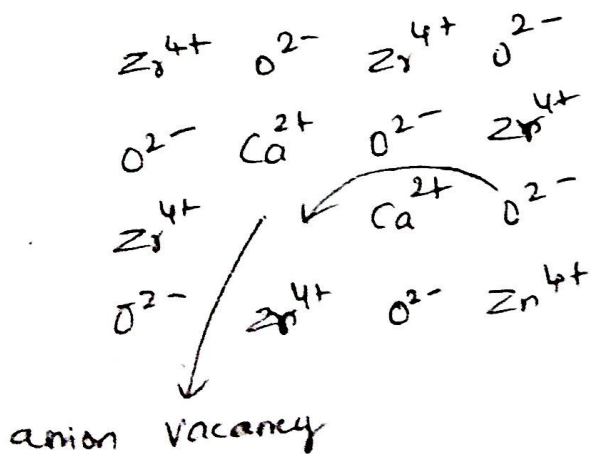 Zr⁴⁺ O²⁻ Zr⁴⁺ O²⁻
O²⁻ Ca²⁺ O²⁻ Zr⁴⁺
Zr⁴⁺ Ca²⁺ O²⁻
O²⁻ Zr⁴⁺ O²⁻ Zn⁴⁺
anion vacancy